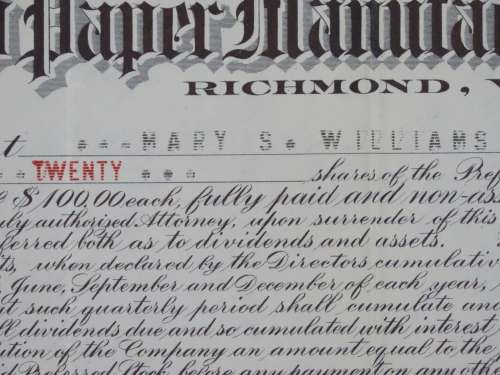 Paper Manufa
RICHMOND, V
t * * * MARY S * WILLIAMS
* * TWENTY * * * shares of the Pref
$100.00 each, fully paid and non-as
uly authorized Attorney, upon surrender of this
ferred both as to dividends and assets.
ts, when declared by the Directors cumulativ
June, September and December of each year,
t such quarterly period shall cumulate and
ll dividends due and so cumulated with interest
ution of the Company an amount equal to the
id Preferred Stock before any payment on any oth